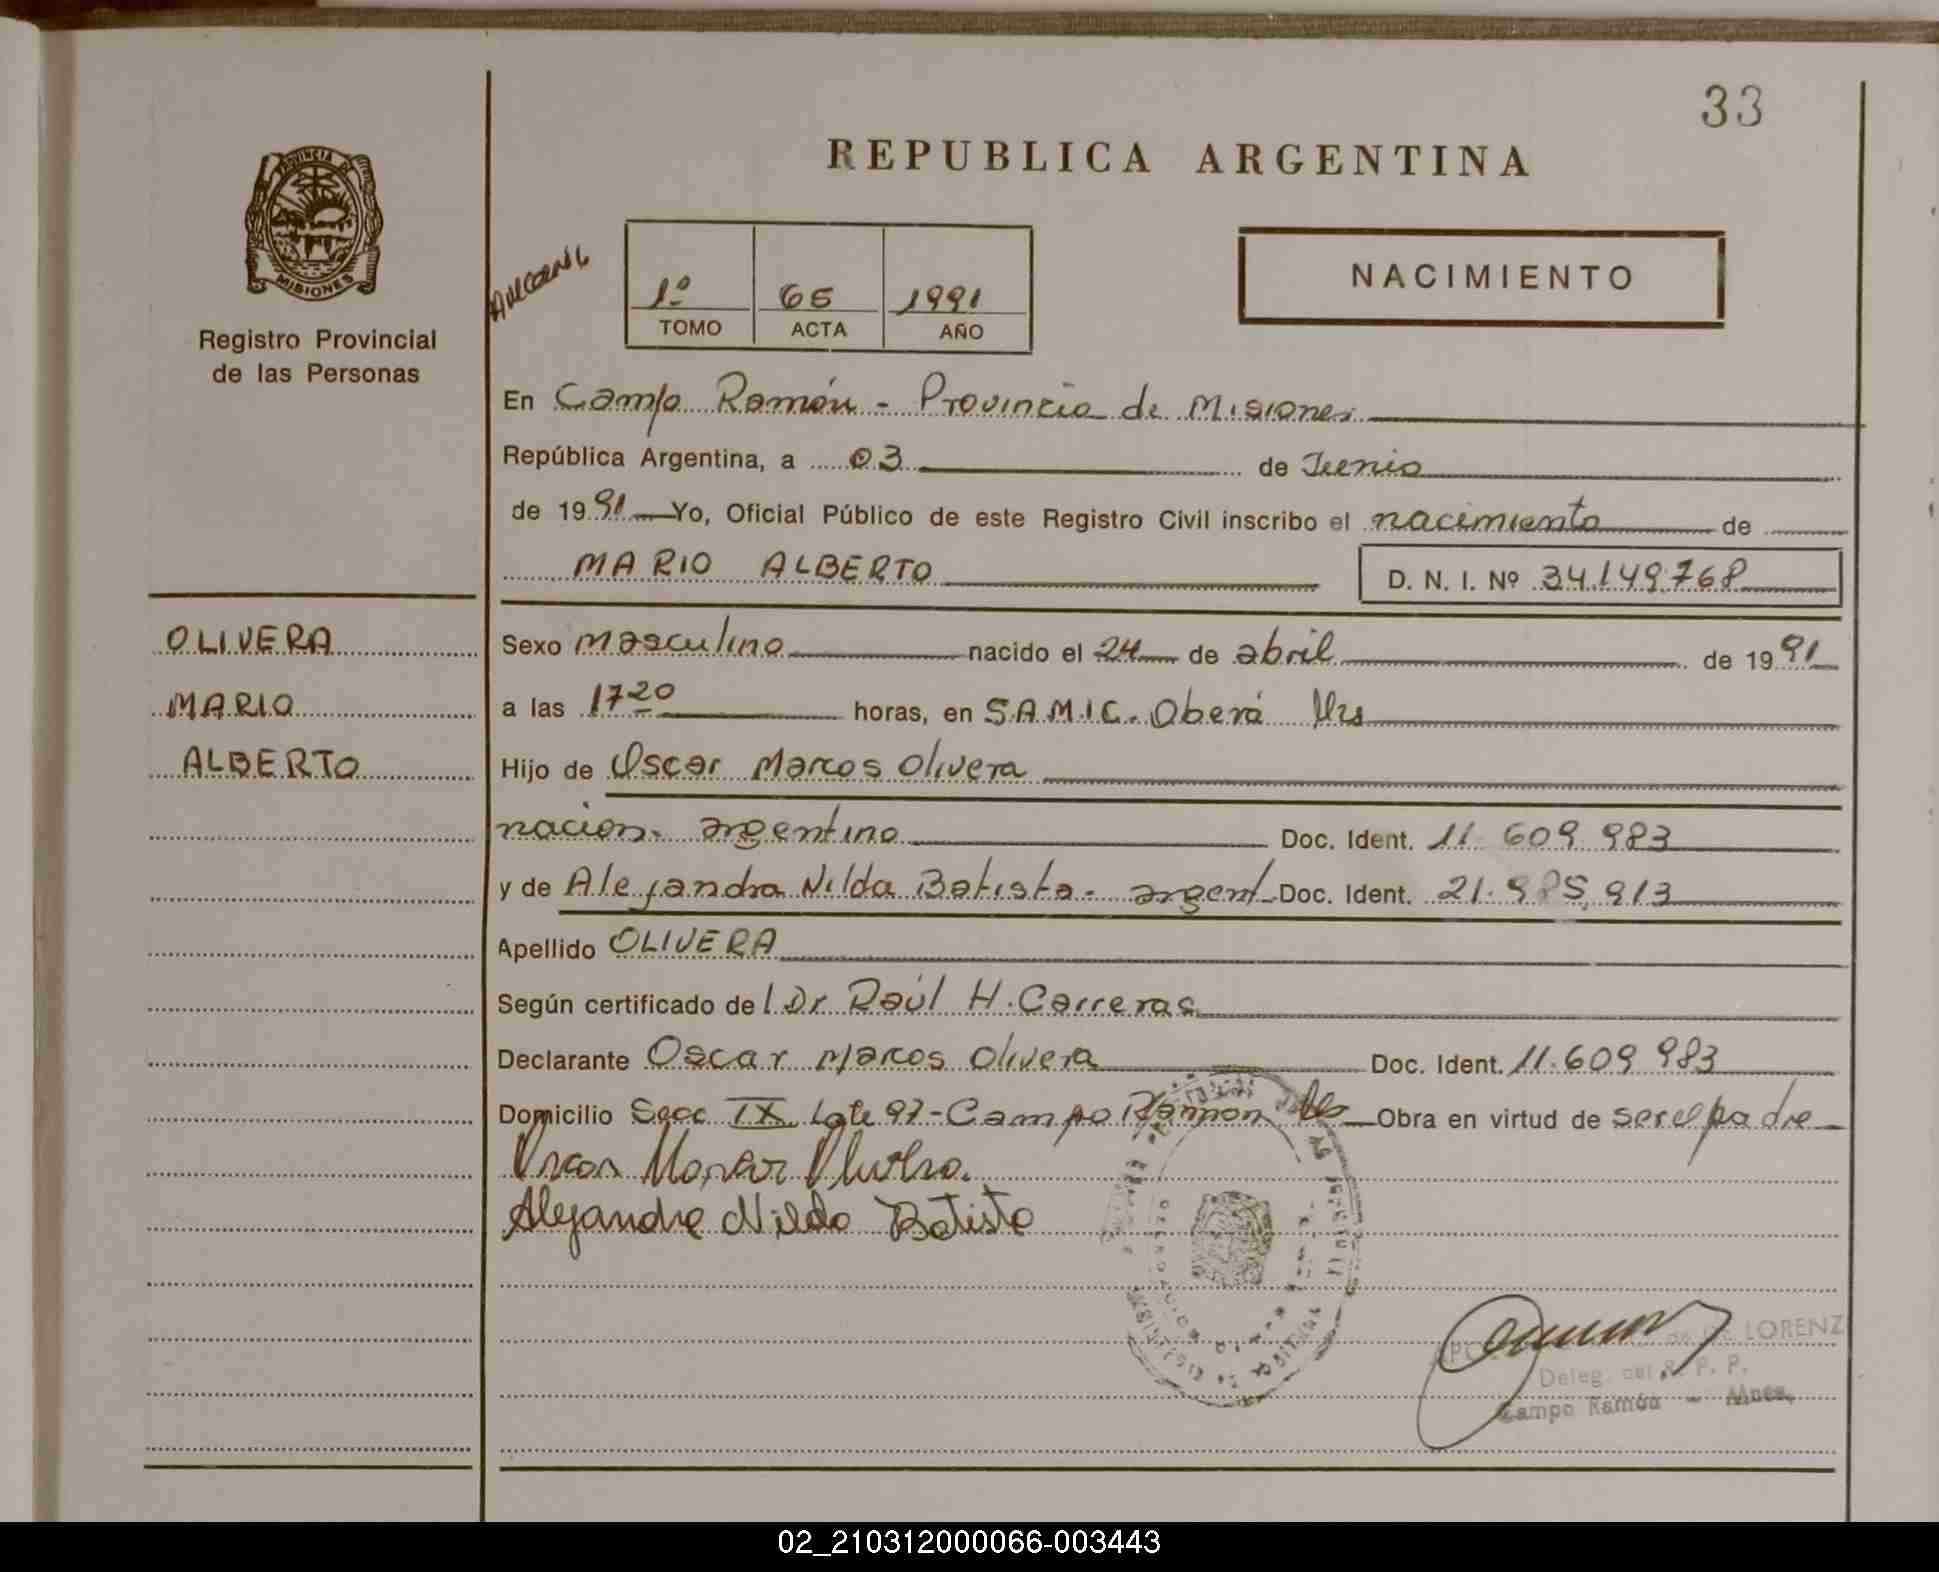 33
REPUBLICA ARGENTINA
PROVINCIA DE
MISIONES
Registro Provincial
de las Personas
1º 65 1991
TOMO ACTA AÑO
NACIMIENTO
En Campo Ramón - Provincia de Misiones
República Argentina, a 03 de Junio
de 1991 Yo, Oficial Público de este Registro Civil inscribo el nacimiento de
MARIO ALBERTO D. N. I. Nº 34.149.768
OLIVERA
MARIO
ALBERTO
Sexo masculino nacido el 24 de abril de 1991
a las 17 20 horas, en S.A.M.I.C. Oberá Mns
Hijo de Oscar Marcos Olivera
nacion. argentino Doc. Ident. 11 609 983
y de Alejandra Nilda Batista - argent. Doc. Ident. 21.985.913
Apellido OLIVERA
Según certificado del Dr Raúl H. Carreras
Declarante Oscar Marcos Olivera Doc. Ident. 11.609 983
Domicilio Secc IX Lote 97 - Campo Ramón Mns Obra en virtud de ser el padre
Oscar Marcos Olivera.
Alejandra Nilda Batista
de LORENZ
Deleg. del R. P. P.
Campo Ramón - Mnes.
02_210312000066-003443